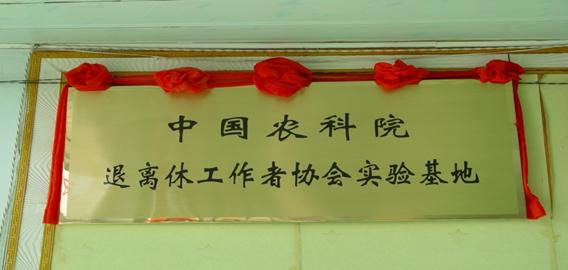 中国农科院
退离休工作者协会实验基地